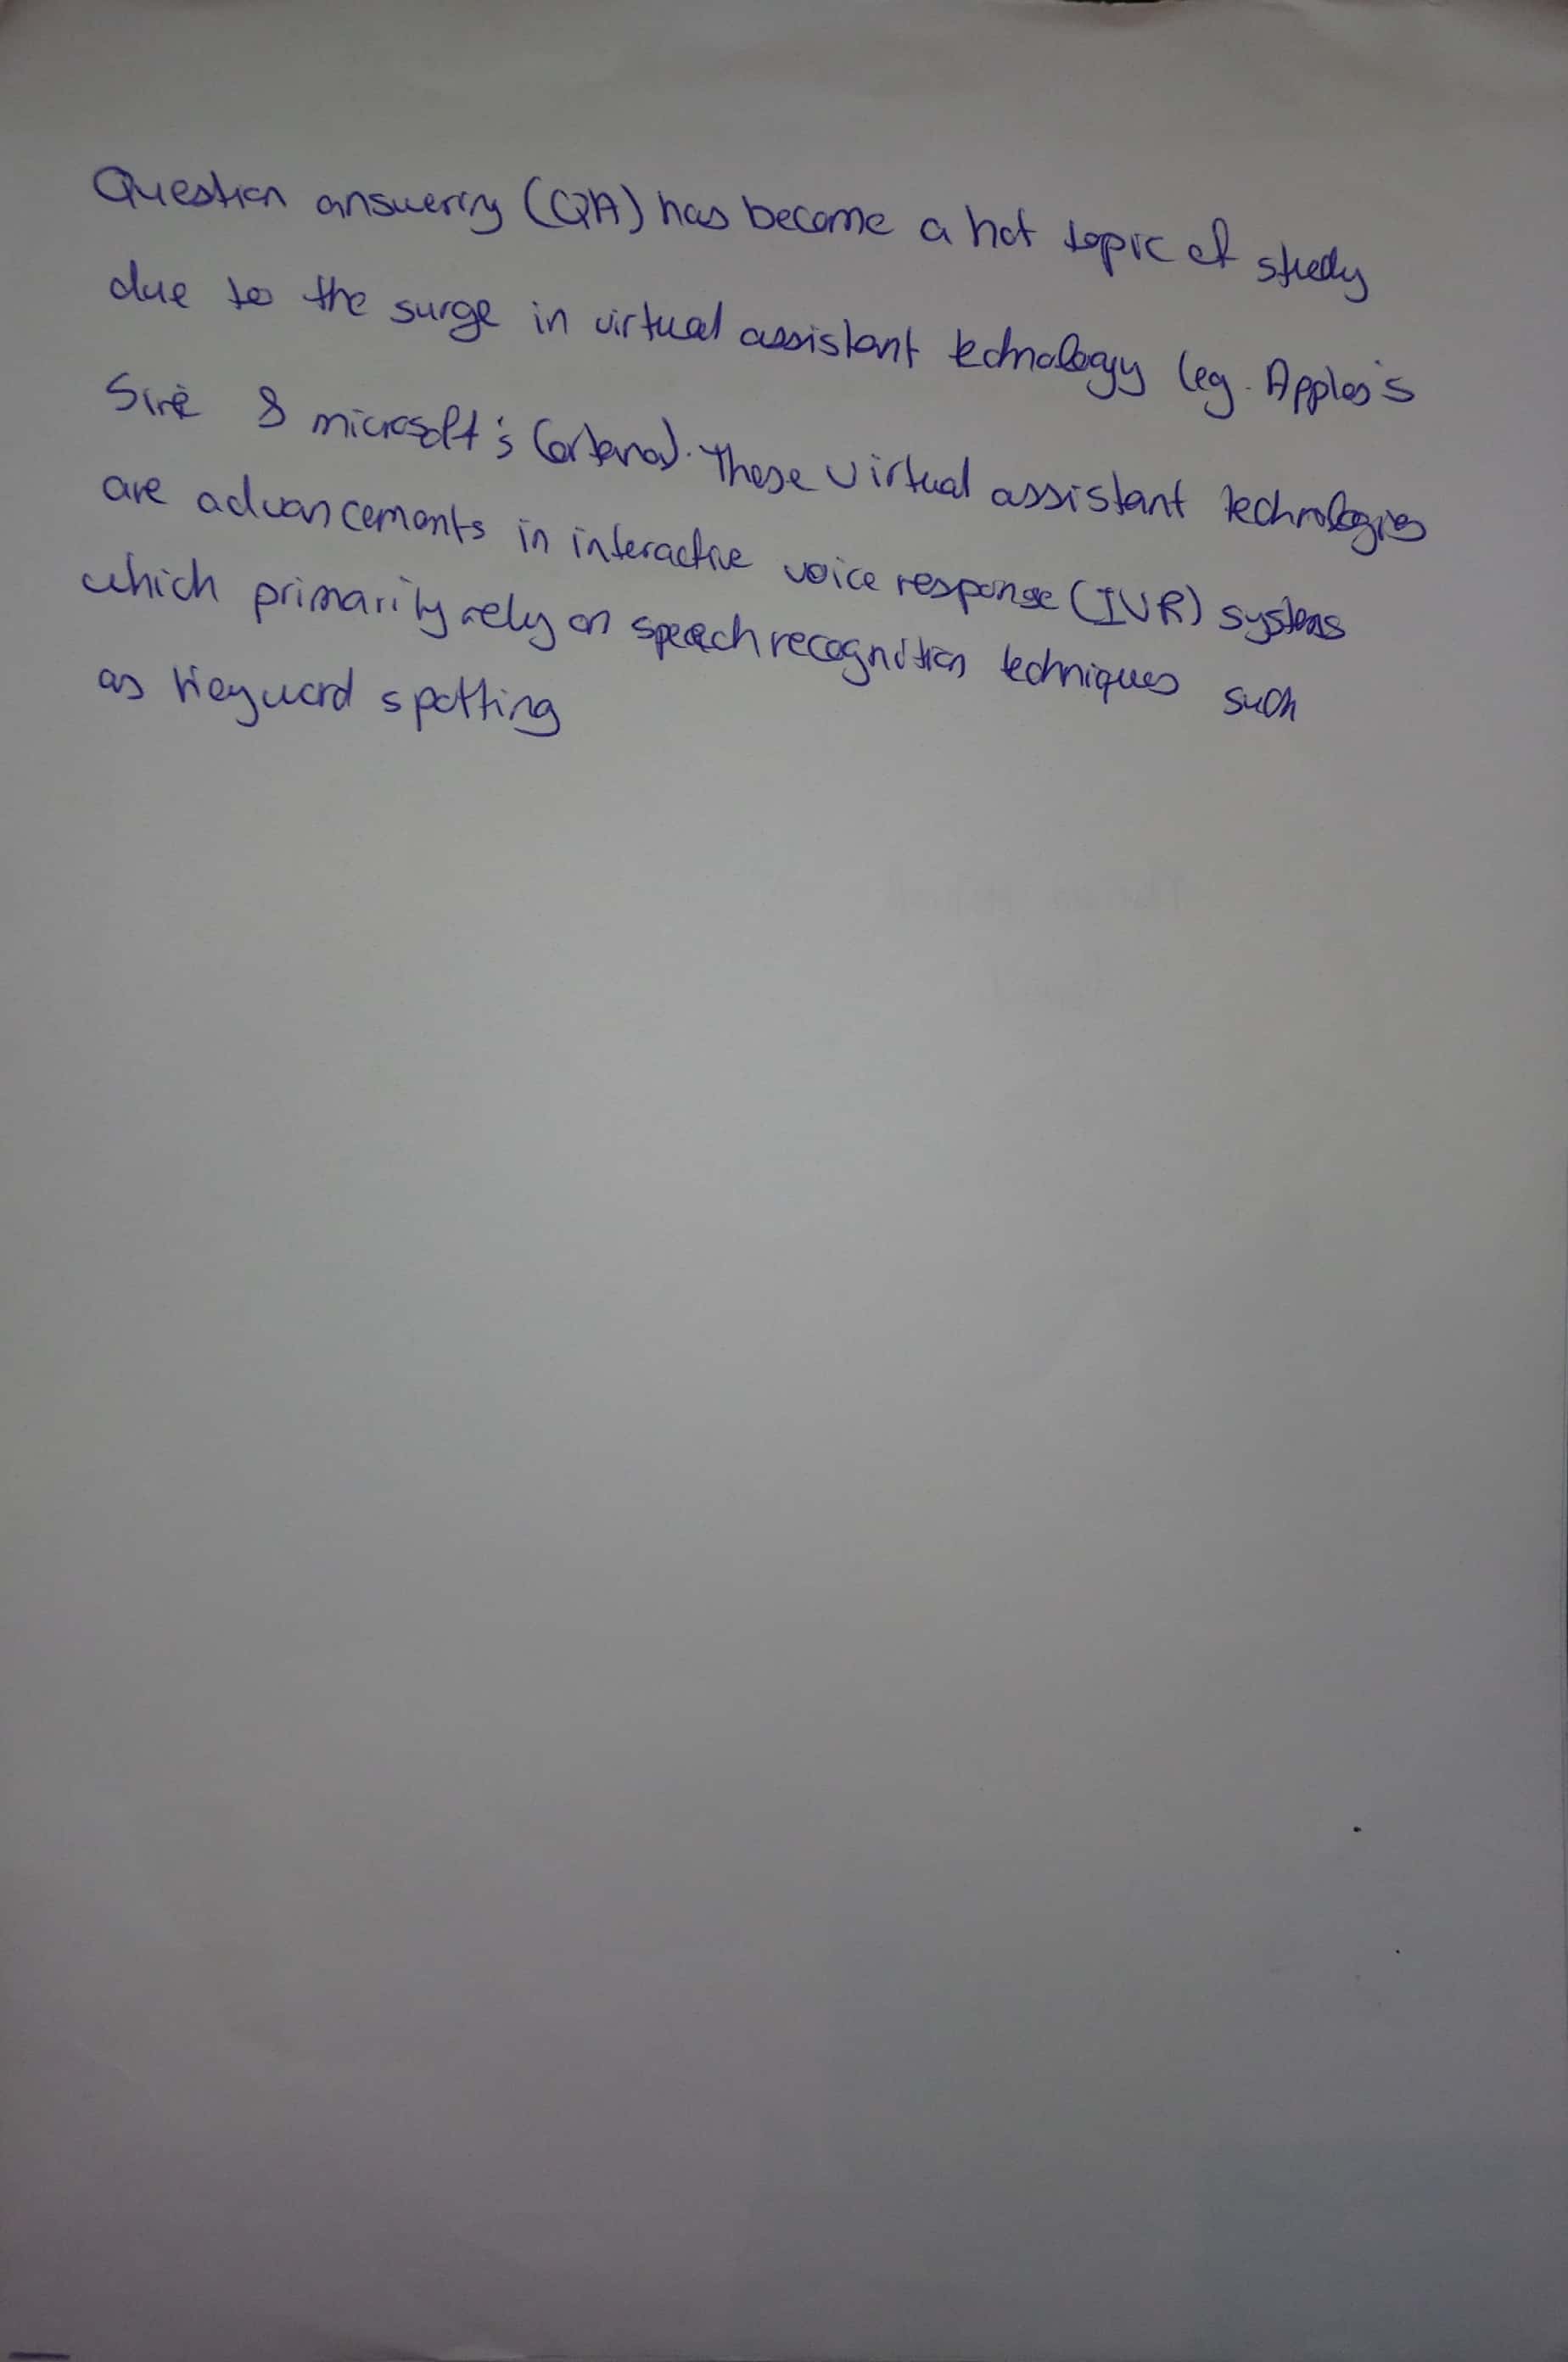 Question answering (QA) has become a hot topic of study
due to the surge in virtual assistant technology (eg. Apples's
Siri & microsoft's Cortana). These virtual assistant technologies
are advancements in interactive voice response (IVR) systems
which primarily rely on speech recognition techniques such
as keyword spotting